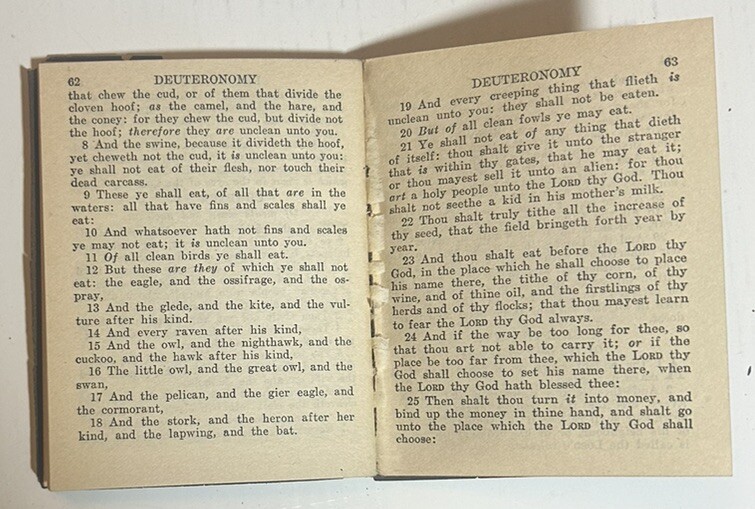 62 DEUTERONOMY
that chew the cud, or of them that divide the
cloven hoof; as the camel, and the hare, and
the coney: for they chew the cud, but divide not
the hoof; therefore they are unclean unto you.
8 And the swine, because it divideth the hoof,
yet cheweth not the cud, it is unclean unto you:
ye shall not eat of their flesh, nor touch their
dead carcass.
9 These ye shall eat, of all that are in the
waters: all that have fins and scales shall ye
eat:
10 And whatsoever hath not fins and scales
ye may not eat; it is unclean unto you.
11 Of all clean birds ye shall eat.
12 But these are they of which ye shall not
eat: the eagle, and the ossifrage, and the os-
pray,
13 And the glede, and the kite, and the vul-
ture after his kind.
14 And every raven after his kind,
15 And the owl, and the nighthawk, and the
cuckoo, and the hawk after his kind,
16 The little owl, and the great owl, and the
swan,
17 And the pelican, and the gier eagle, and
the cormorant,
18 And the stork, and the heron after her
kind, and the lapwing, and the bat.
DEUTERONOMY 63
19 And every creeping thing that flieth is
unclean unto you: they shall not be eaten.
20 But of all clean fowls ye may eat.
21 Ye shall not eat of any thing that dieth
of itself: thou shalt give it unto the stranger
that is within thy gates, that he may eat it;
or thou mayest sell it unto an alien: for thou
art a holy people unto the LORD thy God. Thou
shalt not seethe a kid in his mother's milk.
22 Thou shalt truly tithe all the increase of
thy seed, that the field bringeth forth year by
year.
23 And thou shalt eat before the LORD thy
God, in the place which he shall choose to place
his name there, the tithe of thy corn, of thy
wine, and of thine oil, and the firstlings of thy
herds and of thy flocks; that thou mayest learn
to fear the LORD thy God always.
24 And if the way be too long for thee, so
that thou art not able to carry it; or if the
place be too far from thee, which the LORD thy
God shall choose to set his name there, when
the LORD thy God hath blessed thee:
25 Then shalt thou turn it into money, and
bind up the money in thine hand, and shalt go
unto the place which the LORD thy God shall
choose: